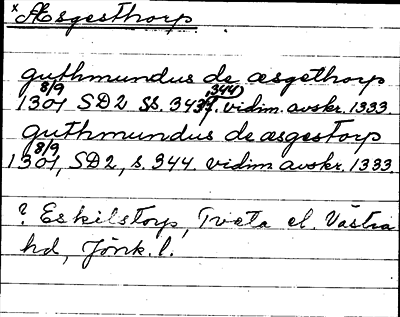 x Æsgesthorp
guthmundus de æsgethorp
1301 8/9 SD2 ss. 343, 344. vidim. avskr. 1333.
guthmundus de æsgestorp
1301 8/9, SD2, s. 344. vidim. avskr. 1333.
? Eskilstorp, Tveta el. Västra
hd, Jönk. l.